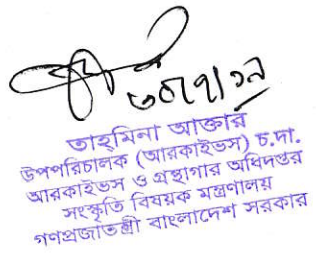 তাহ্‌মিনা আক্তার
উপপরিচালক (আরকাইভস) চ.দা.
আরকাইভস ও গ্রন্থাগার অধিদপ্তর
সংস্কৃতি বিষয়ক মন্ত্রণালয়
গণপ্রজাতন্ত্রী বাংলাদেশ সরকার